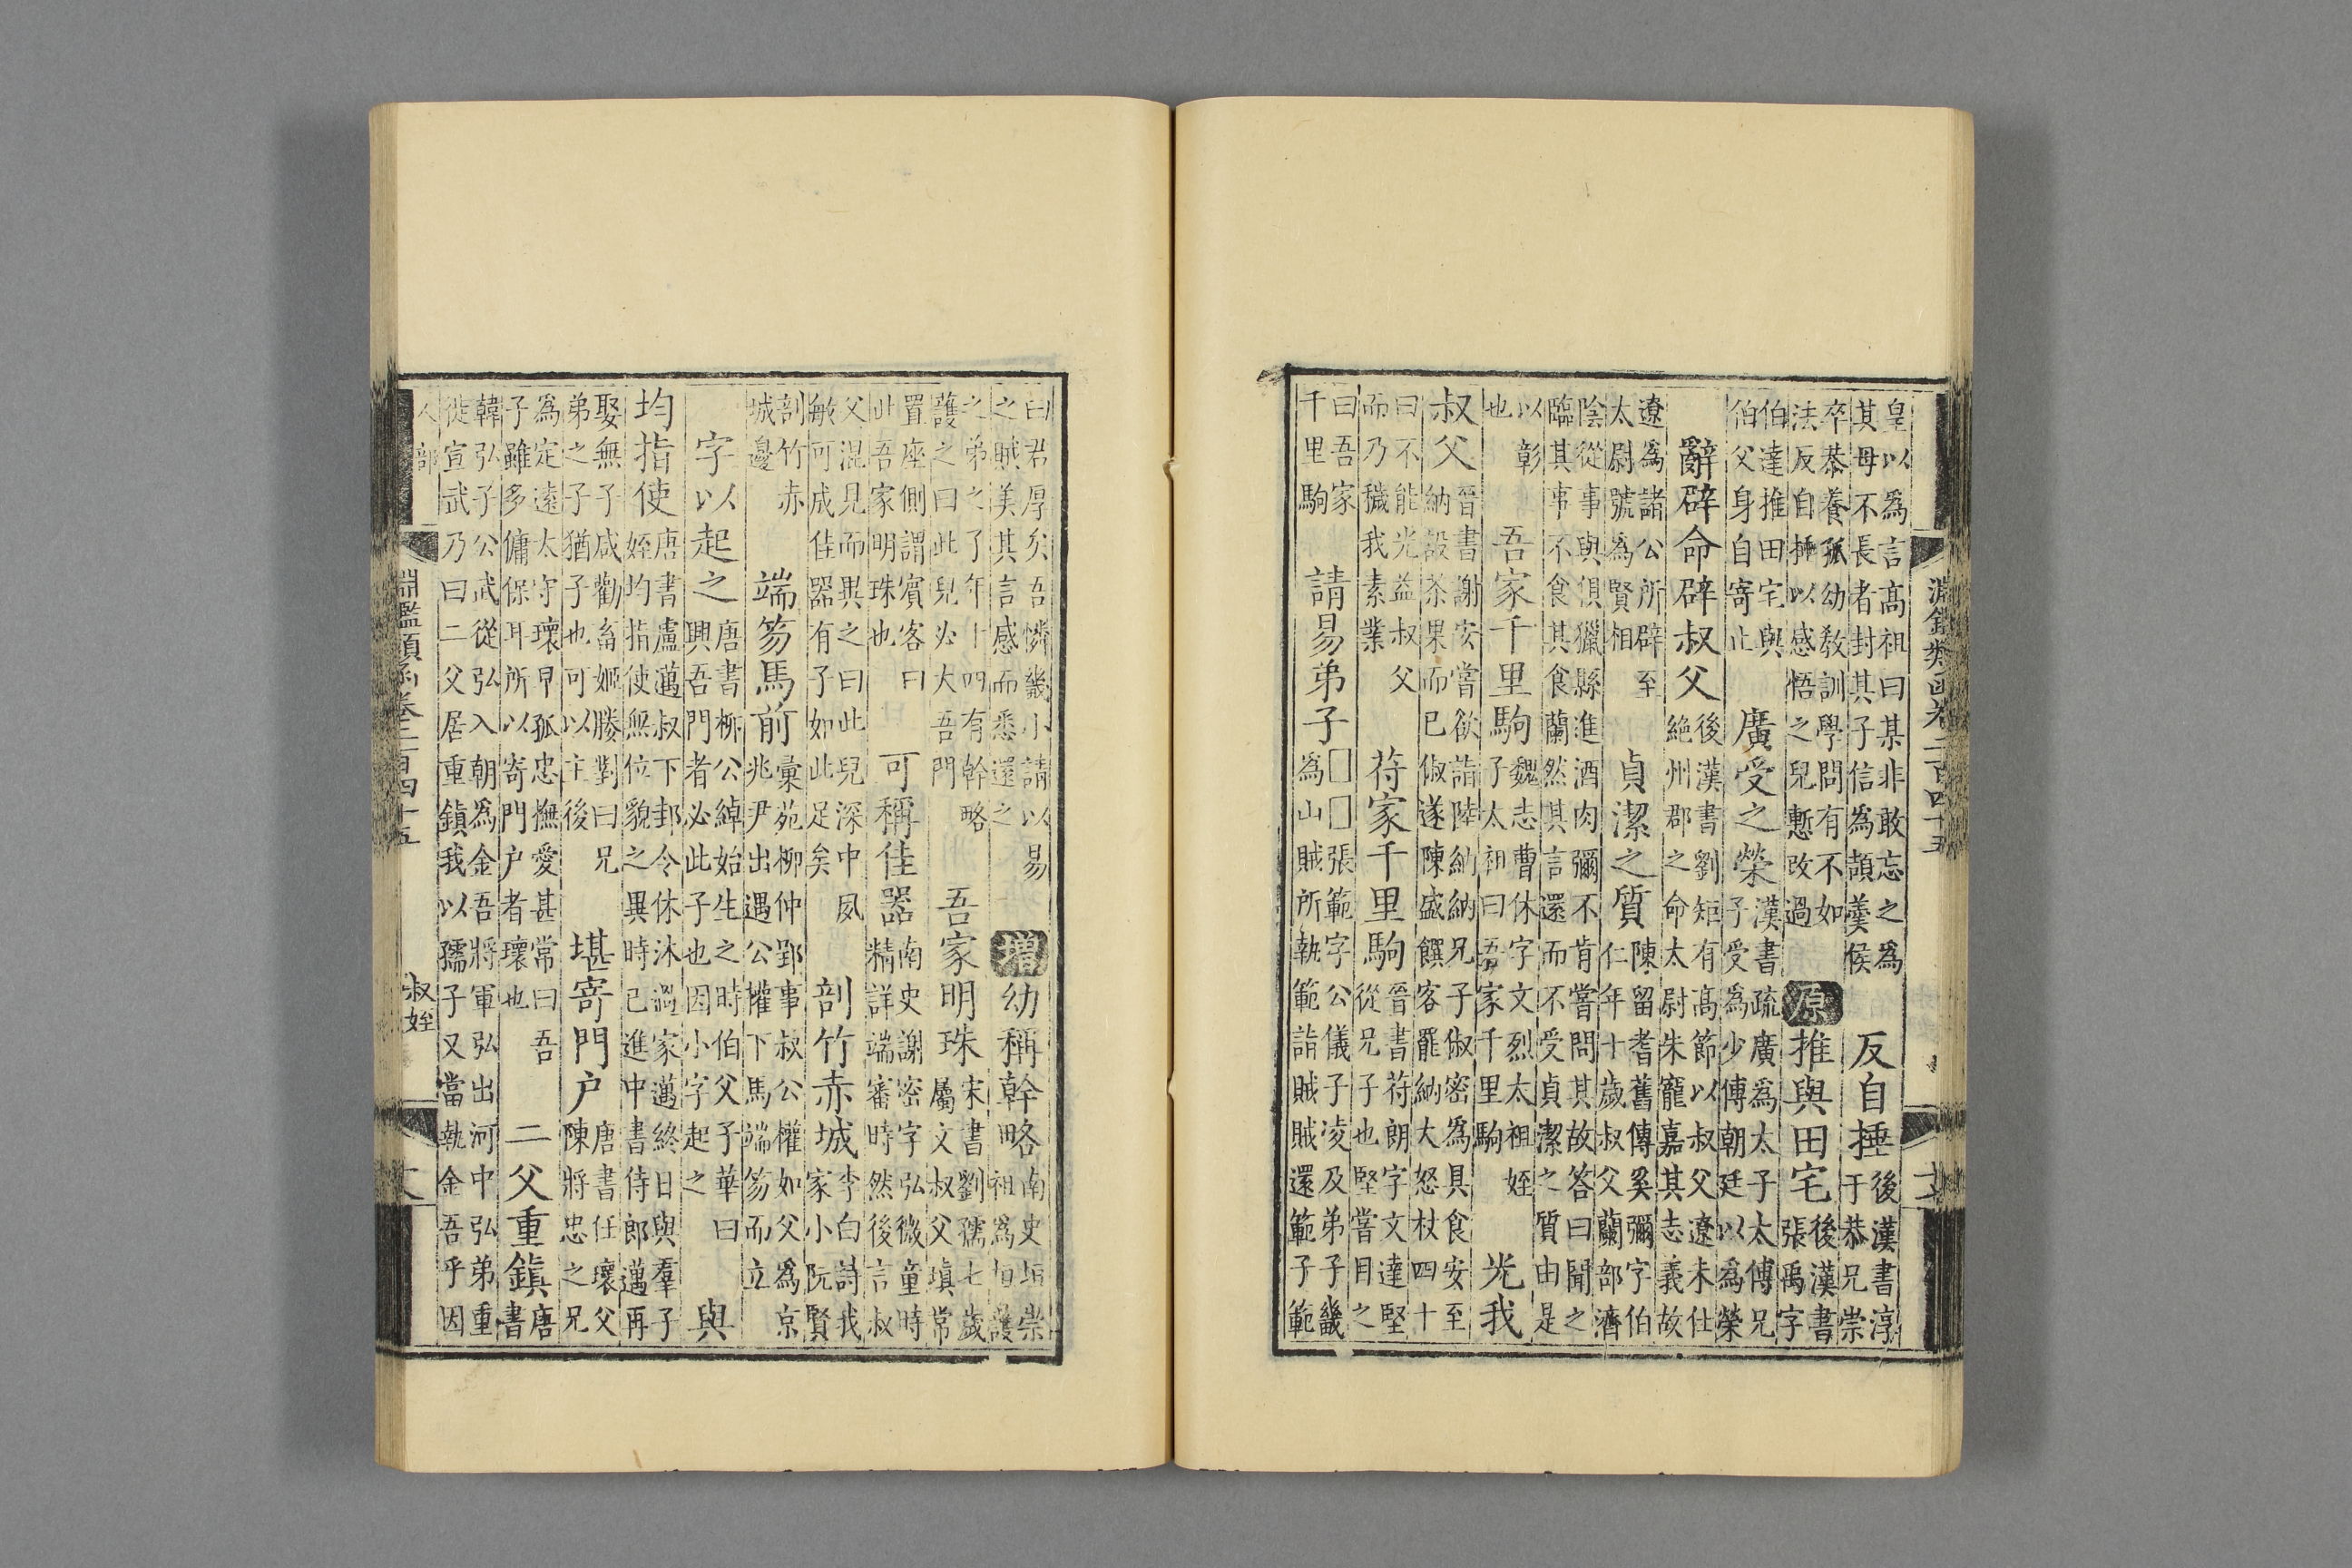 淵鑑類函卷二百四十五
皇以爲言高祖曰某非敢忘之爲
其母不長者封其子信爲頡羹侯
反自捶
後漢書淳
于恭兄崇
卒恭養孤幼教訓學問有不如
法反自捶以感悟之兒慙改過
原
推與田宅
後漢書
張禹字
伯達推田宅與
伯父身自寄止
廣受之榮
漢書疏廣爲太子太傅兄
子受爲少傅朝廷以爲榮
辭辟命辟叔父
後漢書劉矩有高節以叔父遼未仕
絶州郡之命太尉朱寵嘉其志義故
遼爲諸公所辟至
太尉號為賢相
貞潔之質
陳留耆舊傳奚彌字伯
仁年十歲叔父蘭部濟
陰從事與俱獵縣進酒肉彌不肯嘗問其故答曰聞之
臨其事不食其食蘭然其言還而不受貞潔之質由是
以彰
也
吾家千里駒
魏志曹休字文烈太祖姪
子太祖曰吾家千里駒
光我
叔父
晉書謝安嘗欲詣陸納納兄子俶密爲具食安至
納設茶果而已俶遂陳盛饌客罷納大怒杖四十
曰不能光益叔父
而乃穢我素業
苻家千里駒
晉書苻朗字文達堅
從兄子也堅嘗目之
曰吾家
千里駒
請易弟子
□□張範字公儀子凌及弟子畿
為山賊所執範詣賊賊還範子範
曰君厚矣吾憐畿小請以易
之賊美其言感而悉還之
增
幼稱幹略
南史垣崇
祖爲垣護
之弟之子年十四有幹略
護之曰此兒必大吾門
吾家明珠
宋書劉孺七歲
屬文叔父瑱常
置座側謂賓客曰
此吾家明珠也
可稱佳器
南史謝密字弘微童時
精詳端審時然後言叔
父混見而異之曰此兒深中夙
敏可成佳器有子如此足矣
剖竹赤城
李白詩我
家小阮賢
剖竹赤
城邊
端笏馬前
彙苑柳仲郢事叔公權如父爲京
兆尹出遇公權下馬端笏而立
字以起之
唐書柳公綽始生之時伯父子華曰
興吾門者必此子也因小字起之
與
均指使
唐書盧邁叔下邽令休沐過家邁終日與羣子
姪均指使無位貌之異時已進中書侍郎邁再
娶無子咸勸畜姬媵對曰兄
弟之子猶子也可以主後
堪寄門户
唐書任瓌父
陳將忠之兄
為定遠太守瓌早孤忠撫愛甚常曰吾
子雖多傭保耳所以寄門户者瓌也
二父重鎭
唐
書
韓弘子公武從弘入朝爲金吾將軍弘出河中弘弟重
徙宣武乃曰二父居重鎭我以孺子又當執金吾乎因
人部
淵鑑類函卷二百四十五
叔姪